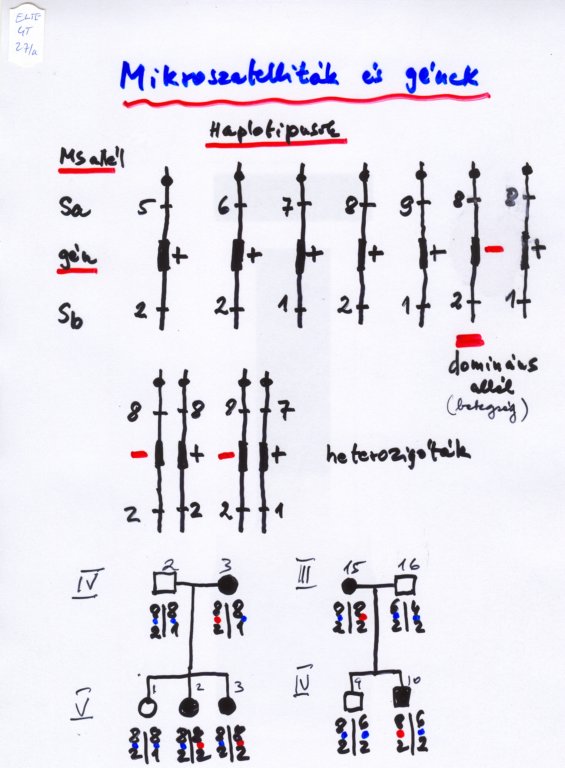 ELTE
GT
27/a
Mikroszatelliták és gének
Haplotípusok
Ms allél
Sa 5 6 7 8 9 8 8
gén + + + + + - +
Sb 2 2 1 2 1 2 1
domináns
allél
(betegség)
8 8 8 7
- + - +
2 2 2 1
heterozigóták
IV 2 3 III 15 16
8|8 8|8 8|8 6|4
2|1 2|1 2|2 2|2
V 1 2 3 IV 9 10
8|8 8|8 8|8 8|6 8|6
2|1 2|2 2|2 2|2 2|2